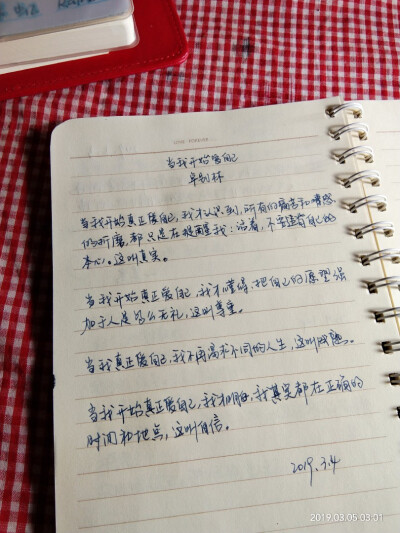 当我开始爱自己
卓别林
当我开始真正爱自己,我才认识到,所有的痛苦和情感
的折磨,都只是在提醒我:活着,不要违背自己的
本心。这叫真实。
当我开始真正爱自己,我才懂得,把自己的愿望强
加于人是多么无礼,这叫尊重。
当我真正爱自己,我不再渴求不同的人生,这叫成熟。
当我开始真正爱自己,我才明白,我其实都在正确的
时间和地点,这叫自信。
2019.3.4
2019.03.05 03:01